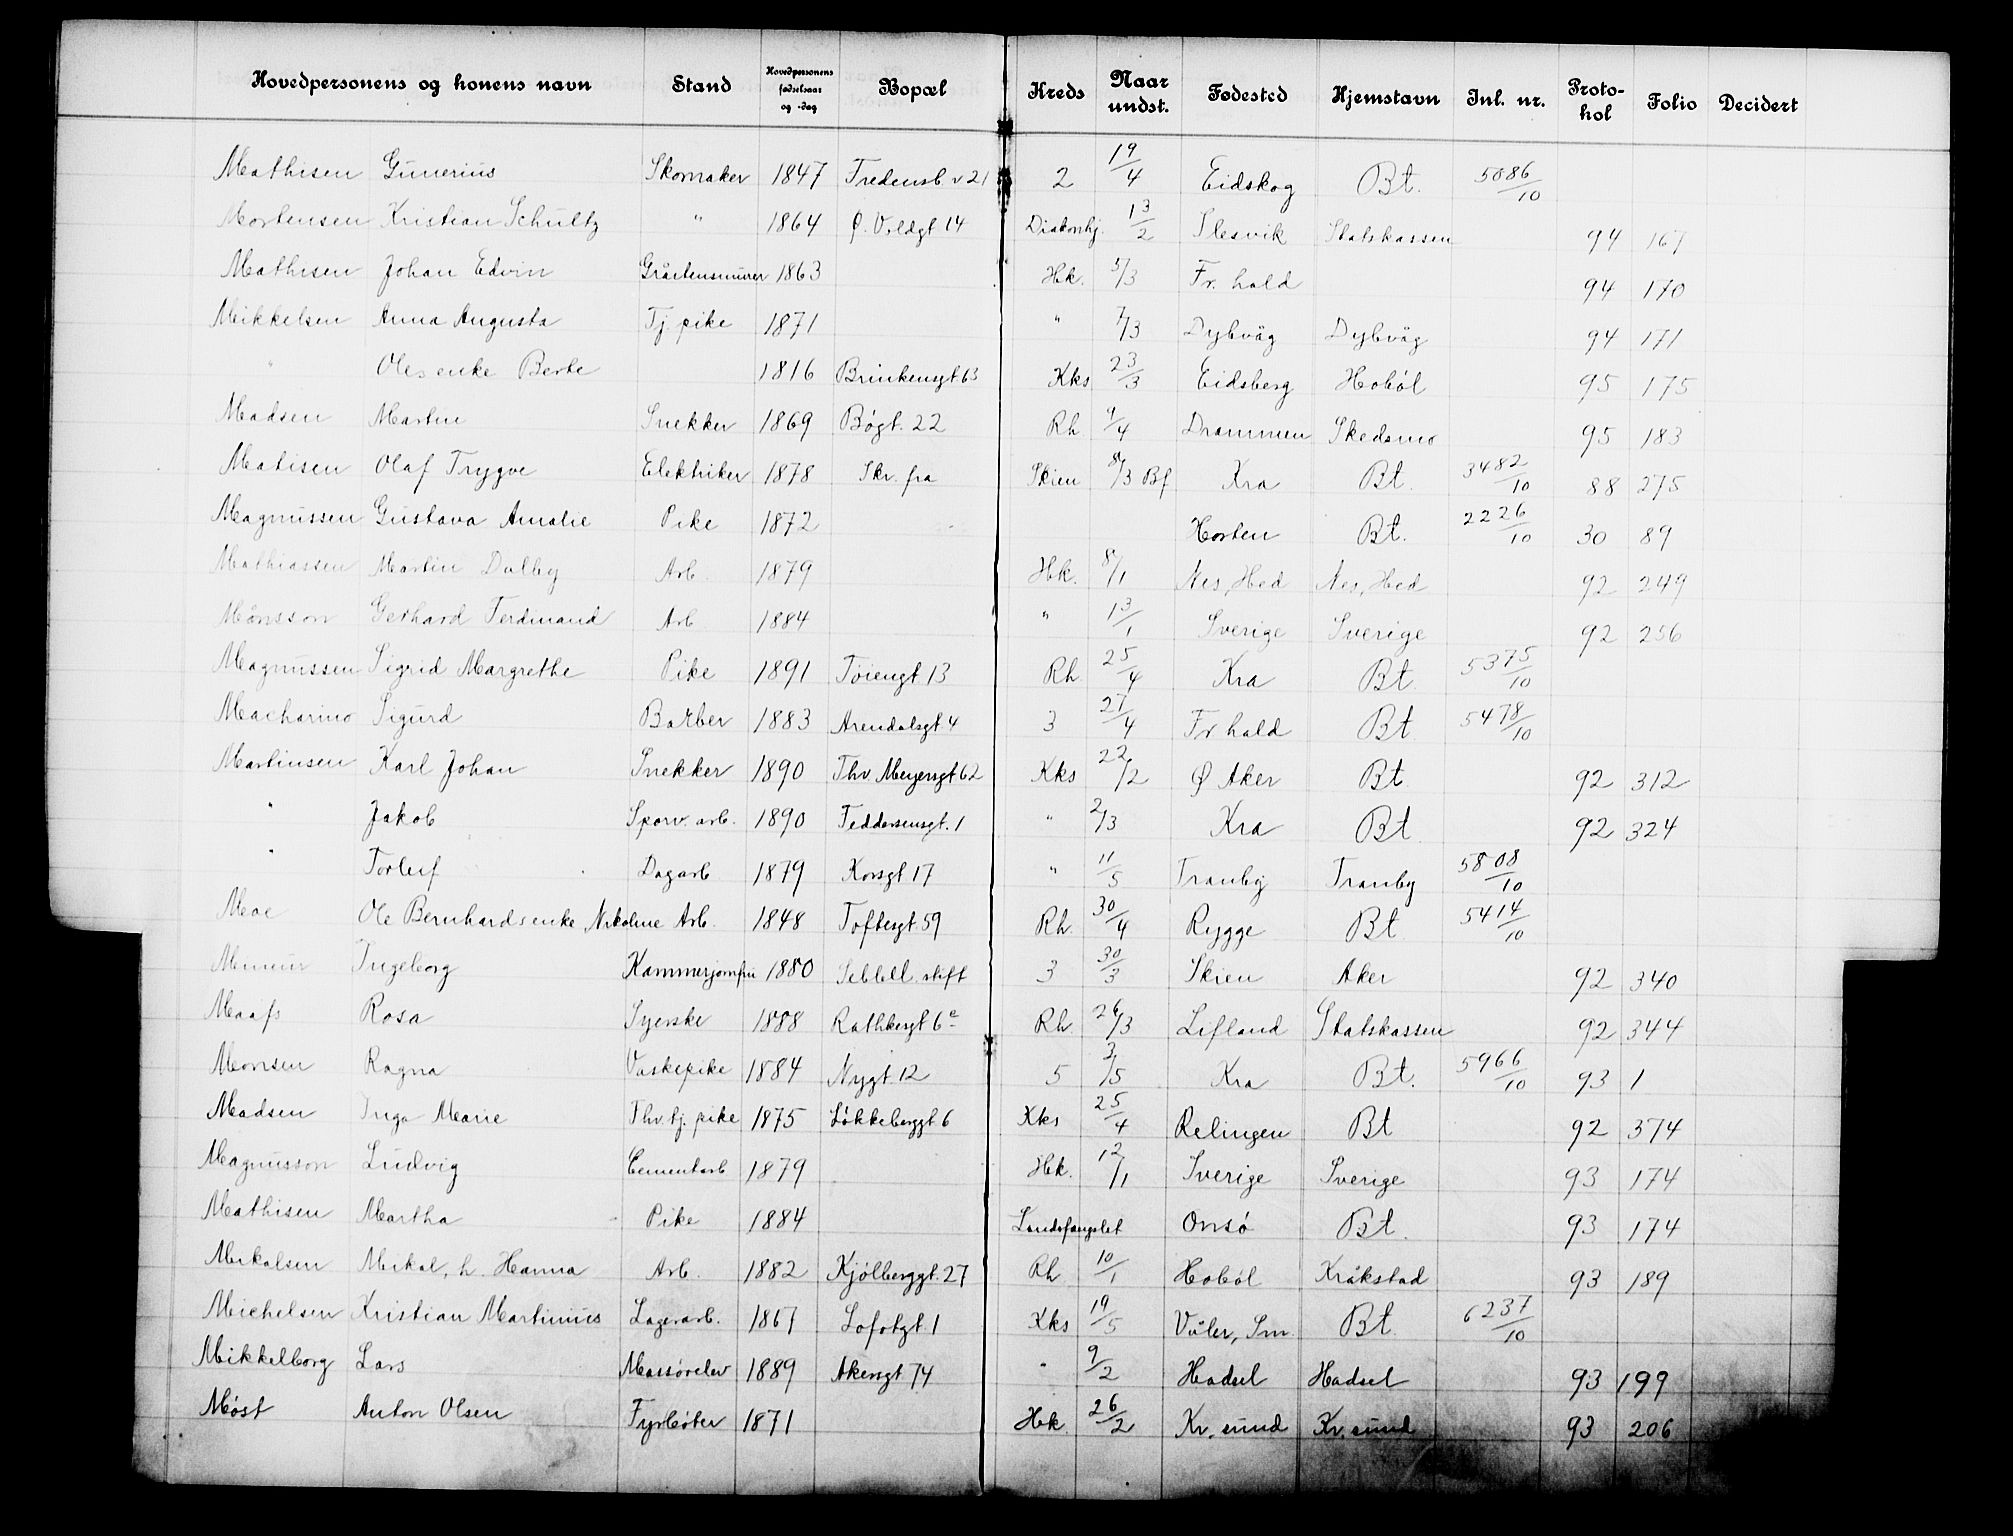 Hovedpersonens og konens navn | Stand | Hovedpersonens fødselsaar og -dag | Bopæl | Kreds | Naar undst. | Fødested | Hjemstavn | Jnl. nr. | Protokol | Folio | Decidert
Mathisen Gunerius | Skomaker | 1847 | Fredensb v 21 | 2 | 19/4 | Eidskog | Bt. | 5086/10
Mortensen Kristian Schultz | " | 1864 | Ø. Voldgt 14 | Diakonhj. | 13/2 | Slesvik | Statskassen | | 94 | 167
Mathisen Johan Edvin | | 1863 | | Hk. | 5/3 | Fr. hald | | | 94 | 170
Mikkelsen Anna Augusta | Tj pike | 1871 | | " | 7/3 | Dybvåg | Dybvåg | | 94 | 171
" Oles enke Berte | | 1816 | Brinkensgt 63 | Kks | 23/3 | Eidsberg | Hobøl | | 95 | 175
Madsen Martin | Snekker | 1869 | Bøgt. 22 | Rh | 9/4 | Drammen | Skedsmo | | 95 | 183
Matisen Olaf Trygve | Elektriker | 1878 | Skr. fra | Skien | 8/3 Bf | Kra | Bt. | 3482/10 | 88 | 275
Magnussen Gustava Amalie | Pike | 1872 | | | | Horten | Bt. | 2226/10 | 30 | 89
Mathiassen Martin Dalby | Arb. | 1879 | | Hk. | 8/1 | Nes, Hed | Nes, Hed | | 92 | 249
Månsson Gerhard Ferdinand | Arb | 1884 | | " | 13/1 | Sverige | Sverige | | 92 | 256
Magnussen Sigrid Margrethe | Pike | 1891 | Tøiengt 13 | Rh | 25/4 | Kra | Bt. | 5375/10
Macharino Sigurd | Barber | 1883 | Arendalsgt 4 | 3 | 27/4 | Fr hald | Bt. | 5478/10
Martinsen Karl Johan | Snekker | 1890 | Thv. Meyersgt 62 | Kks | 22/2 | Ø Aker | Bt. | | 92 | 312
" Jakob | Sporv. arb. | 1890 | Feddersensgt. 1 | " | 2/3 | Kra | Bt | | 92 | 324
" Torleif | Dagarb | 1879 | Korsgt 17 | " | 11/5 | Tranby | Tranby | 5808/10
Moe Ole Bernhards enke Nikoline | Arb. | 1848 | Toftesgt. 59 | Rh. | 30/4 | Rygge | Bt | 5414/10
Ingeborg | Kammerjomfru | 1880 | stift | 3 | 30/3 | Skien | Aker | | 92 | 340
Maafs Rosa | Syerske | 1888 | Rathkesgt 6 e | Rh. | 26/3 | Lifland | Statskassen | | 92 | 344
Monsen Ragna | Vaskepike | 1884 | Nygt. 12 | 5 | 3/5 | Kra | Bt. | 5966/10 | 93 | 1
Madsen Inga Marie | Thv. tj. pike | 1875 | Løkkeberggt 6 | Kks | 25/4 | Relingen | Bt | | 92 | 374
Magnusson Ludvig | Cementarb | 1879 | | Hk. | 12/1 | Sverige | Sverige | | 93 | 174
Mathisen Martha | Pike | 1884 | | Landsfængslet | | Onsø | Bt. | | 93 | 174
Mikalsen Mikal, h. Hanna | Arb. | 1882 | Kjølberggt. 27 | Rh | 10/1 | Hobøl | Kråkstad | | 93 | 189
Michelsen Kristian Martinius | Lagerarb. | 1867 | Lofotgt. 1 | Kks | 19/5 | Våler, Sm. | Bt. | 6237/10
Mikkelborg Lars | Massørelev | 1889 | Akersgt 74 | " | 9/2 | Hadsel | Hadsel | | 93 | 199
Møst Anton Olsen | Fyrbøter | 1871 | | Hk. | 26/2 | Kr. sund | Kr. sund | | 93 | 206